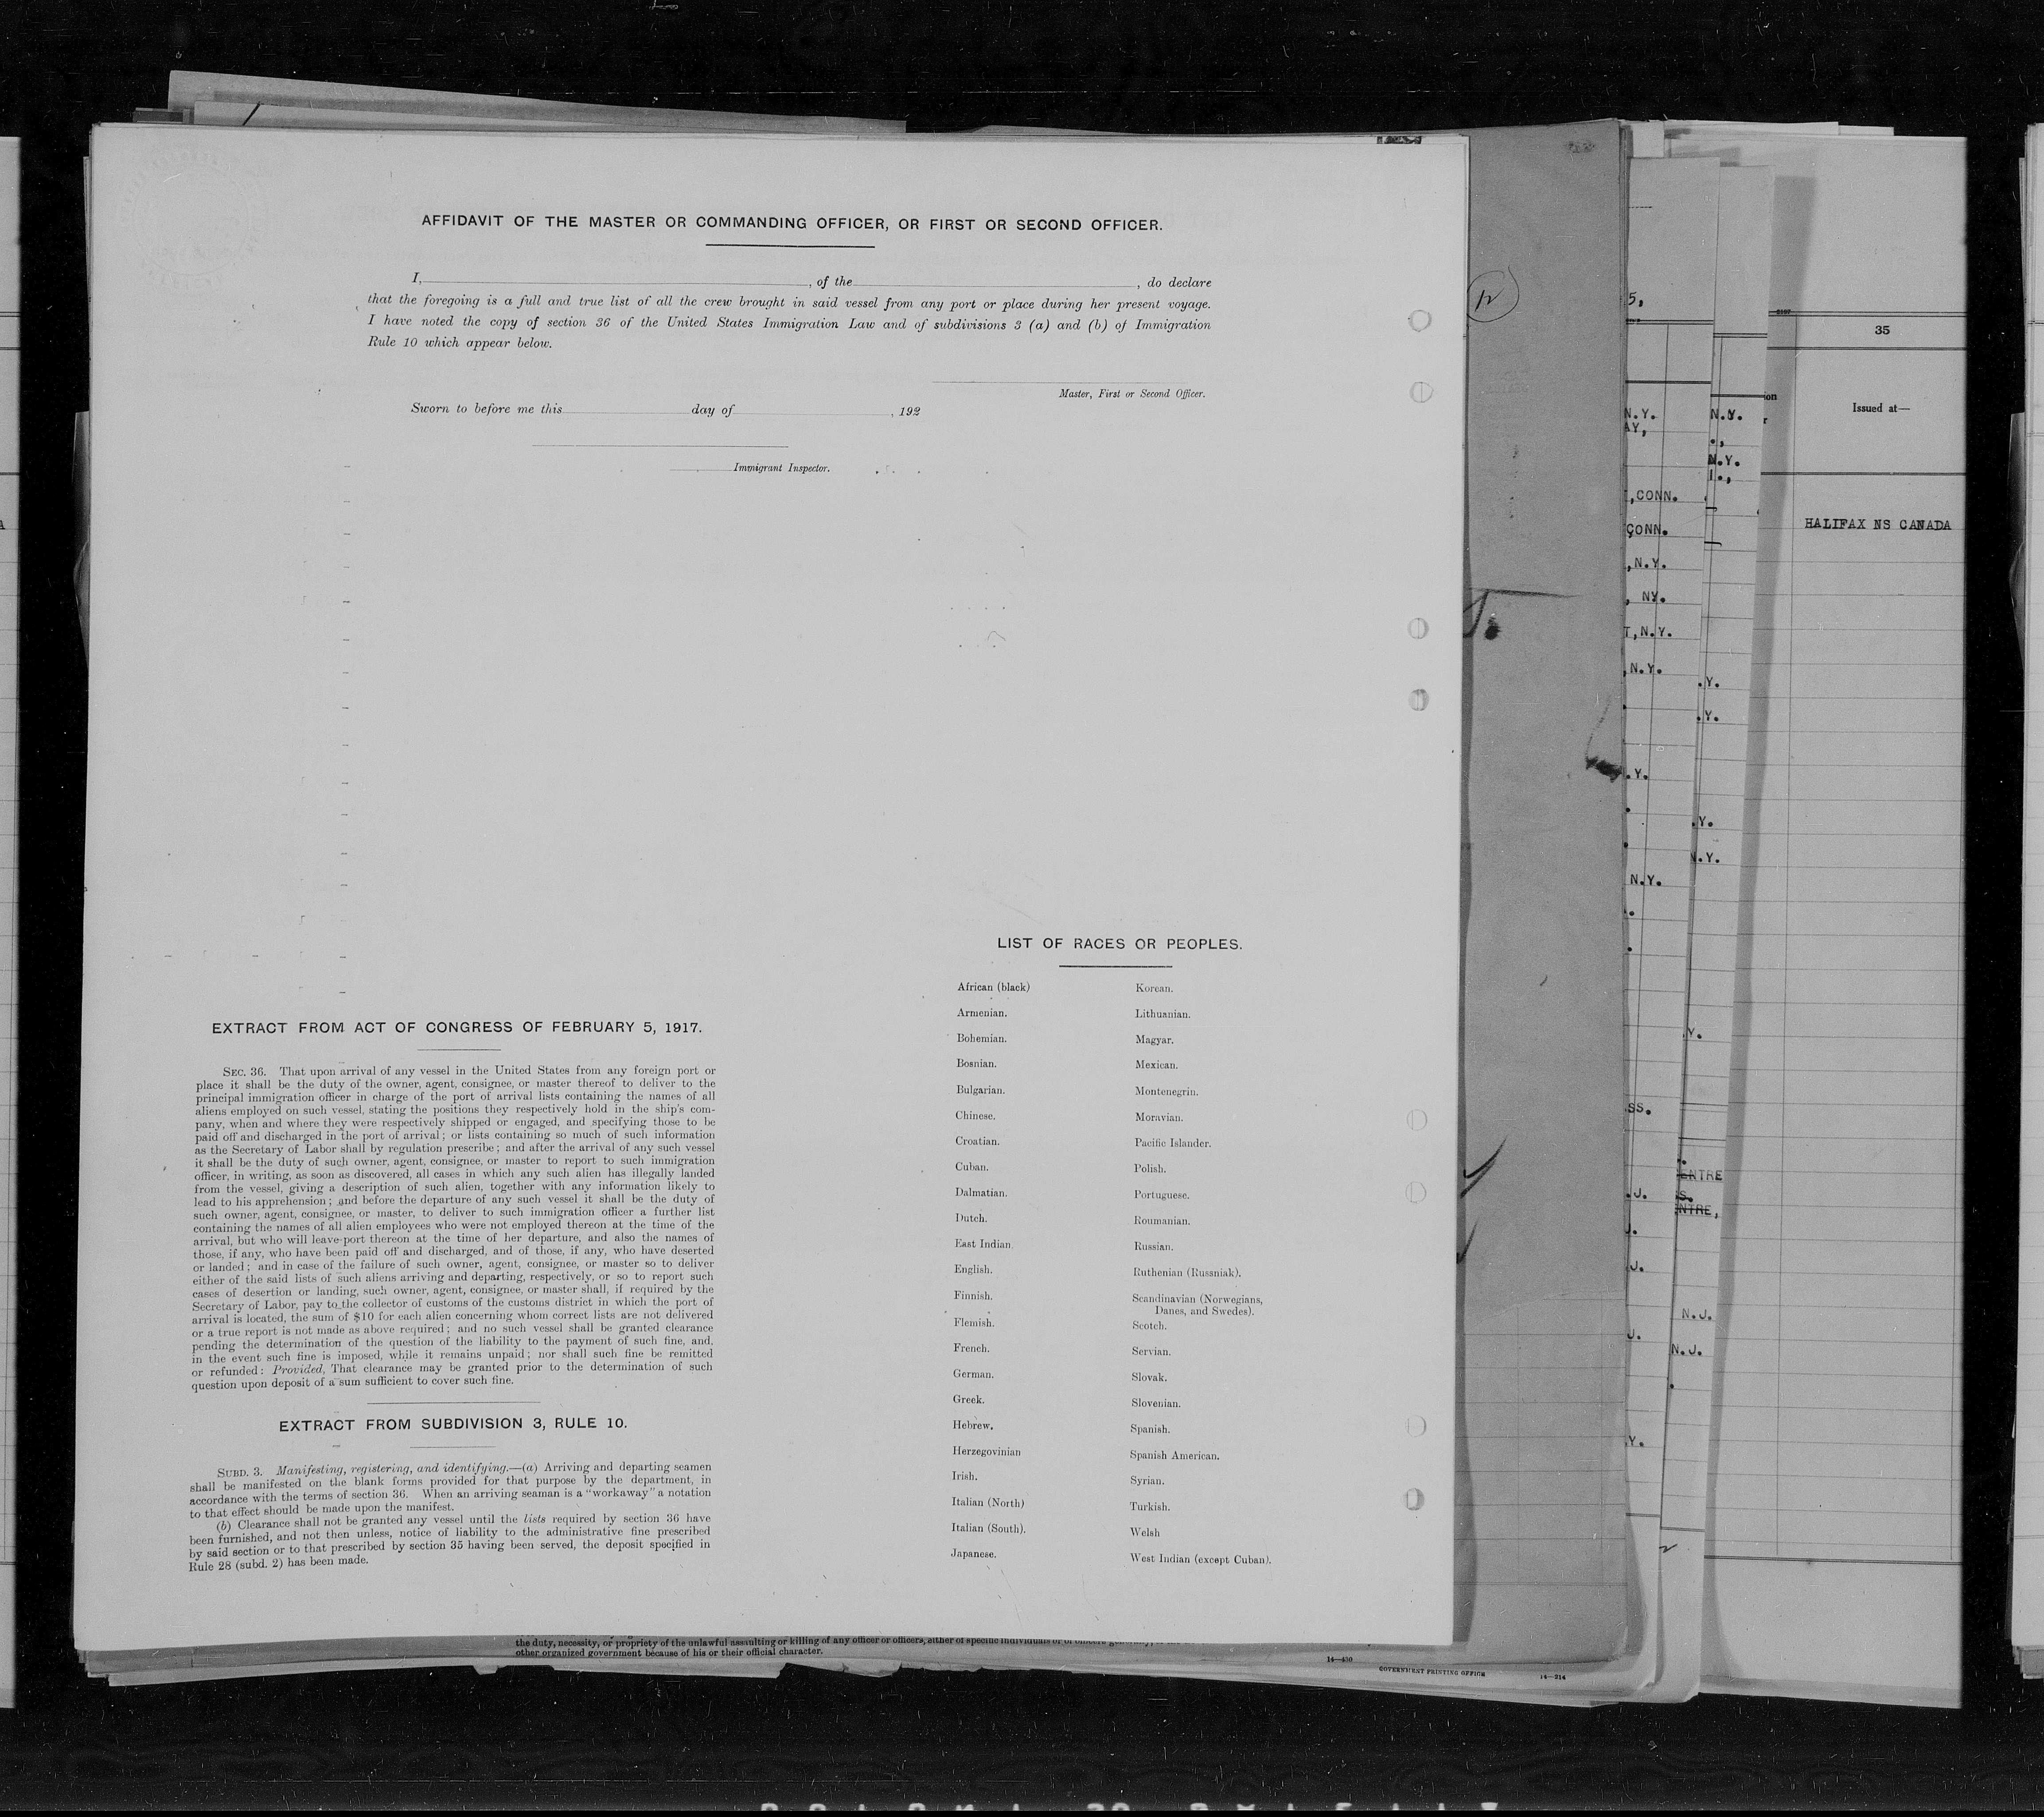 AFFIDAVIT OF THE MASTER OR COMMANDING OFFICER, OR FIRST OR SECOND OFFICER.
I, , of the , do declare
that the foregoing is a full and true list of all the crew brought in said vessel from any port or place during her present voyage.
I have noted the copy of section 36 of the United States Immigration Law and of subdivisions 3 (a) and (b) of Immigration
Rule 10 which appear below.
Master, First or Second Officer.
Sworn to before me this day of , 192
Immigrant Inspector.
EXTRACT FROM ACT OF CONGRESS OF FEBRUARY 5, 1917.
SEC. 36. That upon arrival of any vessel in the United States from any foreign port or
place it shall be the duty of the owner, agent, consignee, or master thereof to deliver to the
principal immigration officer in charge of the port of arrival lists containing the names of all
aliens employed on such vessel, stating the positions they respectively hold in the ship's com-
pany, when and where they were respectively shipped or engaged, and specifying those to be
paid off and discharged in the port of arrival; or lists containing so much of such information
as the Secretary of Labor shall by regulation prescribe; and after the arrival of any such vessel
it shall be the duty of such owner, agent, consignee, or master to report to such immigration
officer, in writing, as soon as discovered, all cases in which any such alien has illegally landed
from the vessel, giving a description of such alien, together with any information likely to
lead to his apprehension; and before the departure of any such vessel it shall be the duty of
such owner, agent, consignee, or master, to deliver to such immigration officer a further list
containing the names of all alien employees who were not employed thereon at the time of the
arrival, but who will leave port thereon at the time of her departure, and also the names of
those, if any, who have been paid off and discharged, and of those, if any, who have deserted
or landed; and in case of the failure of such owner, agent, consignee, or master so to deliver
either of the said lists of such aliens arriving and departing, respectively, or so to report such
cases of desertion or landing, such owner, agent, consignee, or master shall, if required by the
Secretary of Labor, pay to the collector of customs of the customs district in which the port of
arrival is located, the sum of $10 for each alien concerning whom correct lists are not delivered
or a true report is not made as above required; and no such vessel shall be granted clearance
pending the determination of the question of the liability to the payment of such fine, and,
in the event such fine is imposed, while it remains unpaid; nor shall such fine be remitted
or refunded: Provided, That clearance may be granted prior to the determination of such
question upon deposit of a sum sufficient to cover such fine.
EXTRACT FROM SUBDIVISION 3, RULE 10.
SUBD. 3. Manifesting, registering, and identifying.—(a) Arriving and departing seamen
shall be manifested on the blank forms provided for that purpose by the department, in
accordance with the terms of section 36. When an arriving seaman is a "workaway" a notation
to that effect should be made upon the manifest.
(b) Clearance shall not be granted any vessel until the lists required by section 36 have
been furnished, and not then unless, notice of liability to the administrative fine prescribed
by said section or to that prescribed by section 35 having been served, the deposit specified in
Rule 28 (subd. 2) has been made.
LIST OF RACES OR PEOPLES.
African (black)
Armenian.
Bohemian.
Bosnian.
Bulgarian.
Chinese.
Croatian.
Cuban.
Dalmatian.
Dutch.
East Indian.
English.
Finnish.
Flemish.
French.
German.
Greek.
Hebrew.
Herzegovinian
Irish.
Italian (North)
Italian (South).
Japanese.
Korean.
Lithuanian.
Magyar.
Mexican.
Montenegrin.
Moravian.
Pacific Islander.
Polish.
Portuguese.
Roumanian.
Russian.
Ruthenian (Russniak).
Scandinavian (Norwegians,
Danes, and Swedes).
Scotch.
Servian.
Slovak.
Slovenian.
Spanish.
Spanish American.
Syrian.
Turkish.
Welsh
West Indian (except Cuban).
the duty, necessity, or propriety of the unlawful assaulting or killing of any officer or officers, either of specific individuals or of officers
other organized government because of his or their official character.
14—430
GOVERNMENT PRINTING OFFICE
14—214
5,
N.Y.
AY,
,CONN.
CONN.
,N.Y.
, NY.
T,N.Y.
,N.Y.
.Y.
N.Y.
SS.
.J.
J.
.J.
J.
Y.
N.Y.
N.Y.
.Y.
.Y.
.Y.
N.Y.
.Y.
ENTRE
S.
NTRE,
N.J.
N.J.
35
Issued at—
HALIFAX NS CANADA